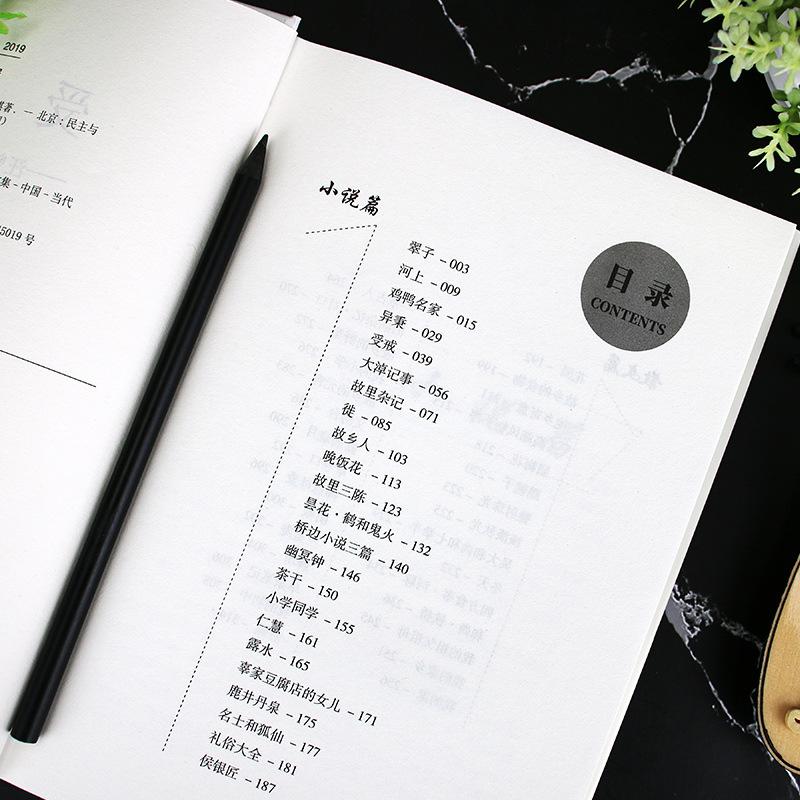 2019
著. — 北京：民主与
集 - 中国 - 当代
5019 号
受
小说篇
目录
CONTENTS
翠子 - 003
河上 - 009
鸡鸭名家 - 015
异秉 - 029
受戒 - 039
大淖记事 - 056
故里杂记 - 071
徙 - 085
故乡人 - 103
晚饭花 - 113
故里三陈 - 123
昙花·鹤和鬼火 - 132
桥边小说三篇 - 140
幽冥钟 - 146
茶干 - 150
小学同学 - 155
仁慧 - 161
露水 - 165
辜家豆腐店的女儿 - 171
鹿井丹泉 - 175
名士和狐仙 - 177
礼俗大全 - 181
侯银匠 - 187